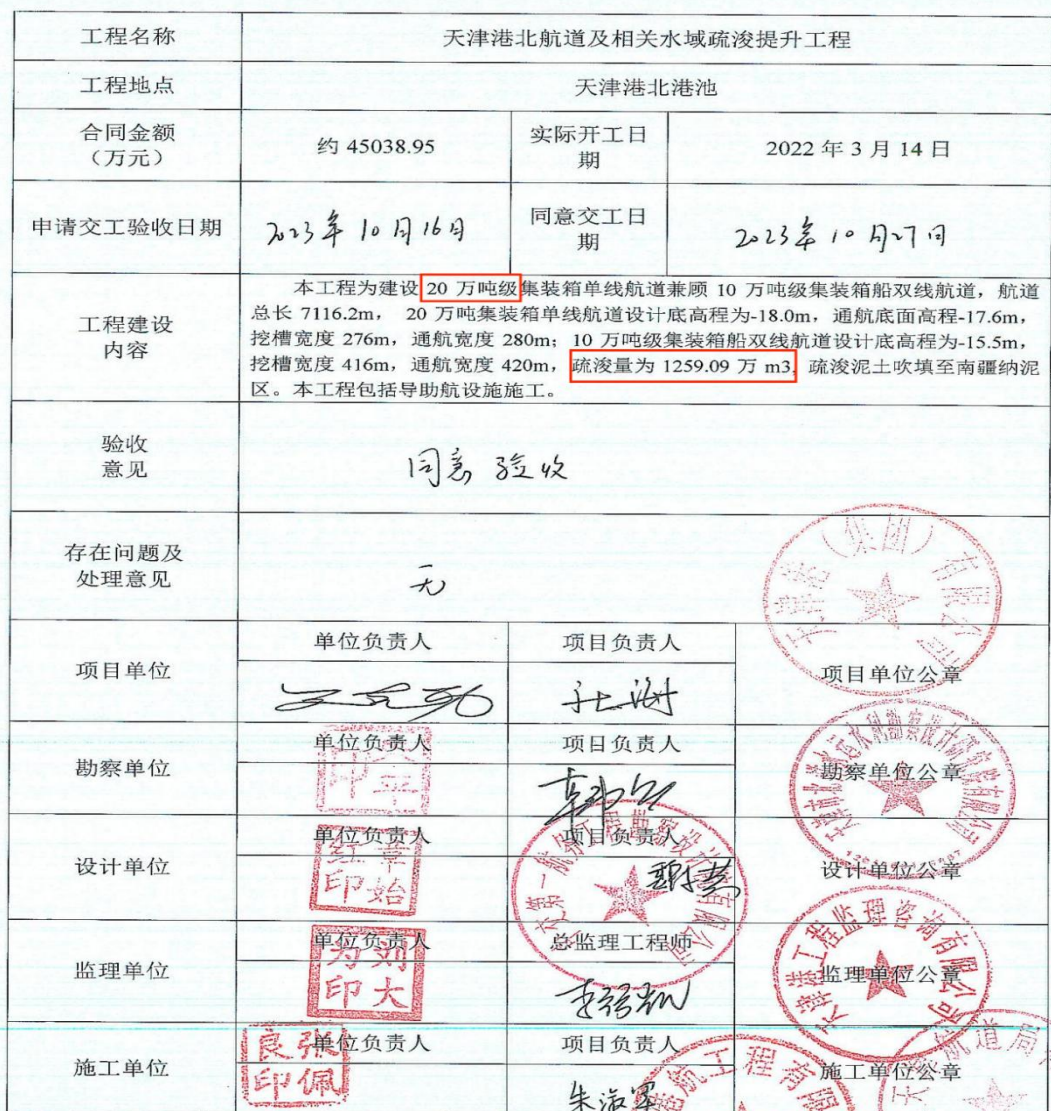 工程名称 天津港北航道及相关水域疏浚提升工程
工程地点 天津港北港池
合同金额（万元） 约 45038.95 实际开工日期 2022 年 3 月 14 日
申请交工验收日期 2023年10月16日 同意交工日期 2023年10月27日
工程建设内容
本工程为建设 20 万吨级集装箱单线航道兼顾 10 万吨级集装箱船双线航道，航道
总长 7116.2m， 20 万吨集装箱单线航道设计底高程为-18.0m，通航底面高程-17.6m，
挖槽宽度 276m，通航宽度 280m；10 万吨级集装箱船双线航道设计底高程为-15.5m，
挖槽宽度 416m，通航宽度 420m，疏浚量为 1259.09 万 m3，疏浚泥土吹填至南疆纳泥
区。本工程包括导助航设施施工。
验收意见 同意验收
存在问题及处理意见 无
项目单位 单位负责人 项目负责人 项目单位公章
勘察单位 单位负责人 项目负责人 勘察单位公章
设计单位 单位负责人 项目负责人 设计单位公章
监理单位 单位负责人 总监理工程师 监理单位公章
施工单位 单位负责人 项目负责人 施工单位公章